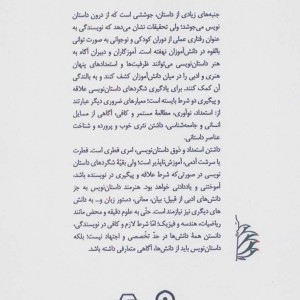 جنبه‌های زیادی از داستان، جوششی است که از درون داستان
نویس می‌جوشد؛ ولی تحقیقات نشان می‌دهد که نویسندگی به
عنوان رفتاری عملی از دوران کودکی و نوجوانی به صورت توانی
بالقوه در دانش‌آموزان نهفته است. آموزگاران و دبیران آگاه به
هنر داستان‌نویسی می‌توانند ظرفیت‌ها و استعدادهای پنهان
هنری و ادبی را در میان دانش‌آموزان کشف کنند و به بالندگی
آن کمک کنند. یادگیری شگردهای داستان‌نویسی علاقه
و پیگیری دو شرط بایسته است؛ معیارهای ضروری دیگر عبارتند
از: استعداد، نوآوری، مطالعهٔ مستمر و کافی، آگاهی از مسایل
انسانی و جامعه‌شناسی، داشتن نثری خوب و پرورده و شناخت
عناصر داستانی.
داشتن استعداد و ذوق داستان‌نویسی، امری فطری است. فطرت
یا سرشت آدمی، آموزش‌ناپذیر است؛ ولی بقیّهٔ شگردهای داستان
نویسی در صورتی‌که شرط علاقه و پیگیری در نویسنده باشد،
آموختنی و یاددادنی خواهد بود. هنرمند داستان‌نویس به جز
دانش‌های ادبی از قبیل: بیان، معانی، دستور زبان و... به دانش
های دیگری نیز نیازمند است. حتّی به علوم دقیقه و محض مانند
ریاضیات، هندسه و فیزیک؛ امّا شرط لازم و کافی در نویسندگی،
دانستن همهٔ دانش‌ها در حدّ تخصّصی و اجتهاد نیست؛ بلکه
داستان‌نویس باید از دانش‌ها، آگاهی متعارفی داشته باشد.